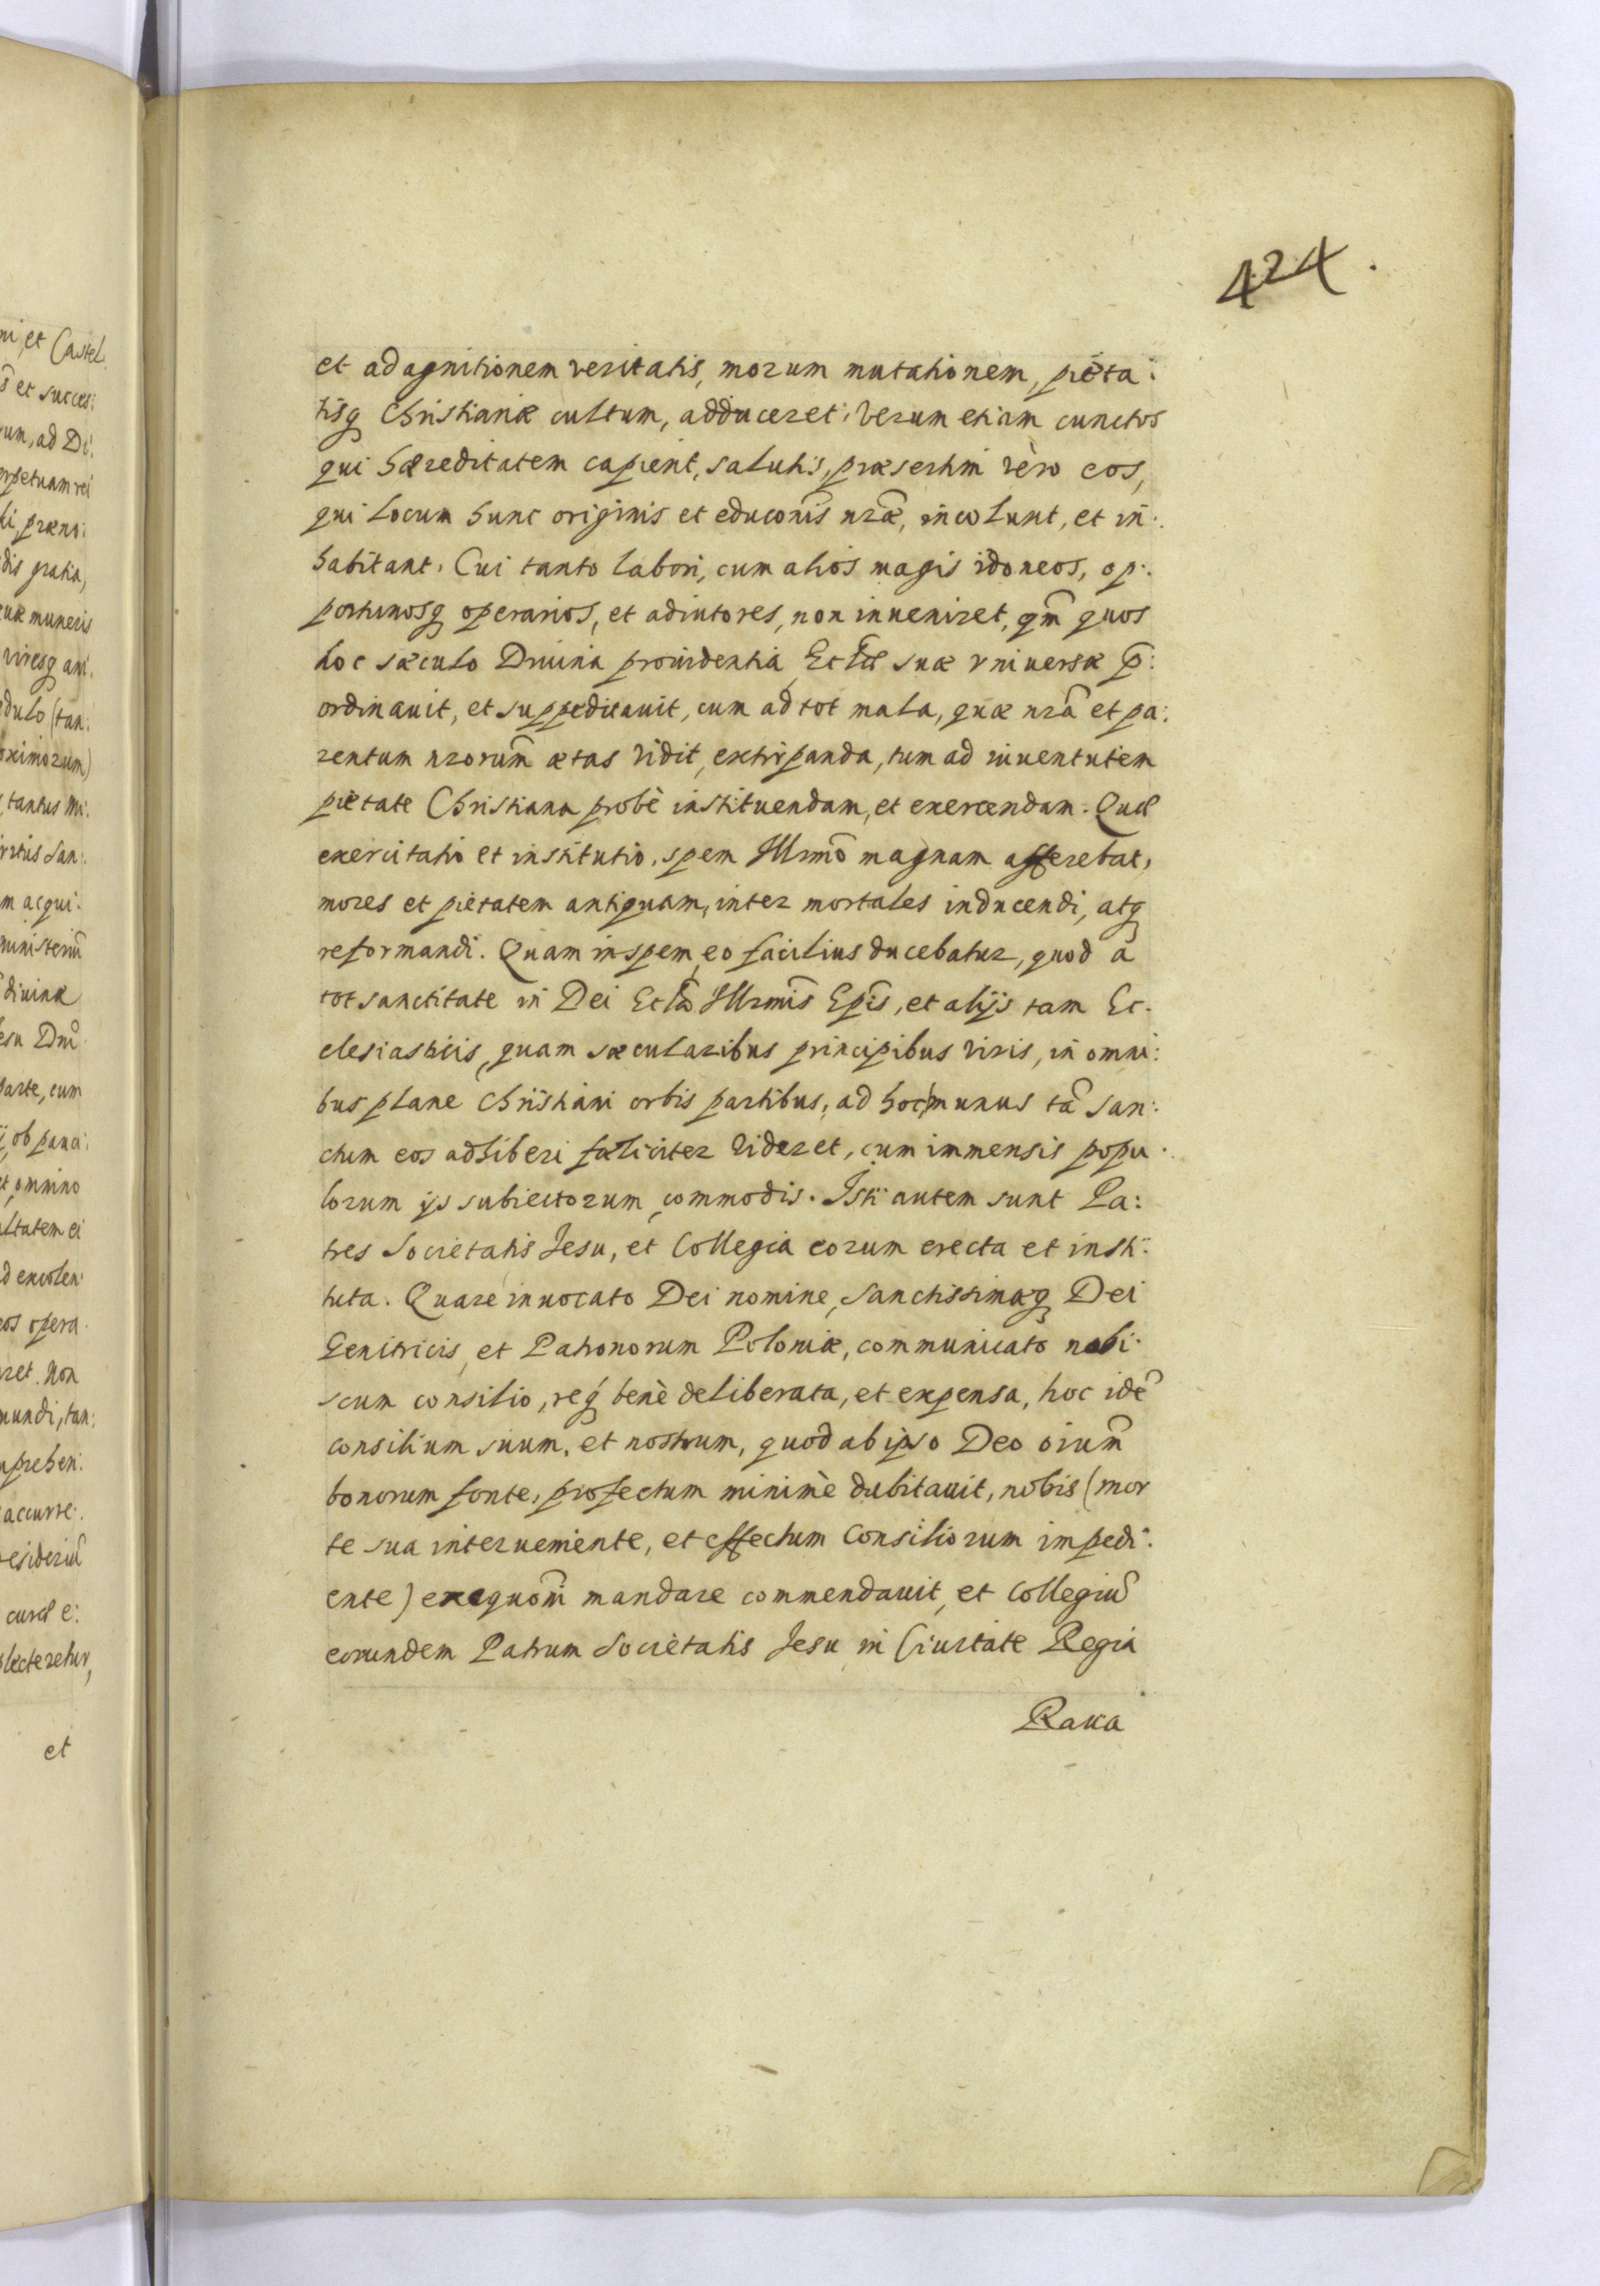 424.
et ad agnitionem veritatis, morum mutationem, pieta:
tisq Christianæ cultum, adduceret, verum etiam cunctos
qui hæreditatem capient, salutis, præsertim vèro eos,
qui locum hunc originis et educõnis nrã, incolunt, et in:
habitant. Cui tanto labori, cum alios magis idoneos, op:
portunosq operarios, et adiutores, non inueniret, qm̃ quos
hoc sæculo Diuina prouidentia Ecclæ suæ vniuersæ p̃:
ordinauit, et suppeditauit, cum ad tot mala, quæ nrã et pa:
rentum nrorum̃ ætas vidit, extirpanda, tum ad iuuentutem
pietate Christiana probè instituendam, et exercendam. Quæ
exercitatio et institutio, spem Illrmõ magnam afferebat,
mores et pietatem antiquam, inter mortales inducendi, atq
reformandi. Quam in spem, eo facilius ducebatur, quod a
tot sanctitate in Dei Ecclã Illrmis̃ Epis̃, et alijs tam Ec:
clesiasticis, quam sæcularibus principibus viris, in omni:
bus plane Christiani orbis partibus, ad hoc munus tã san:
ctum eos adhiberi fæliciter videret, cum immensis popu:
lorum ijs subiectorum, commodis. Isti autem sunt Pa:
tres Societatis Jesu, et Collegia eorum erecta et insti:
tuta. Quare inuocato Dei nomine, sanctissimæq Dei
Genitricis, et Patronorum Poloniæ, communicato nobi:
scum consilio, req́ benè deliberata, et expensa, hoc idẽ
consilium suum, et nostrum, quod ab ipso Deo oium̃
bonorum fonte, profectum minimè dubitauit, nobis (mor
te sua interueniente, et effectum Consiliorum impedi:
ente) exequõni mandare commendauit, et Collegiũ
eorundem Patrum Societatis Jesu in Ciuitate Regia
Raua
et